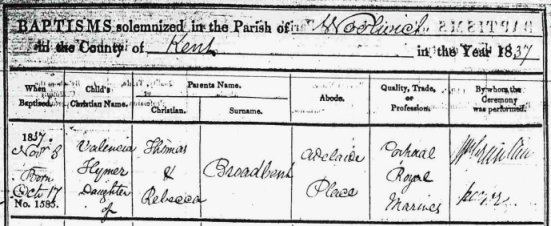 BAPTISMS solemnized in the Parish of Woolwich
in the County of Kent in the Year 1837
When Baptised.
Child's Christian Name.
Parents Name.
Christian.
Surname.
Abode.
Quality, Trade, or Profession.
By whom the Ceremony was performed.
1837.
Novr 8
Born
Octr 17
No. 1585.
Valencia
Hymer
Daughter
of
Thomas
&
Rebecca
Broadbent
Adelaide
Place
Corporal
Royal
Marines